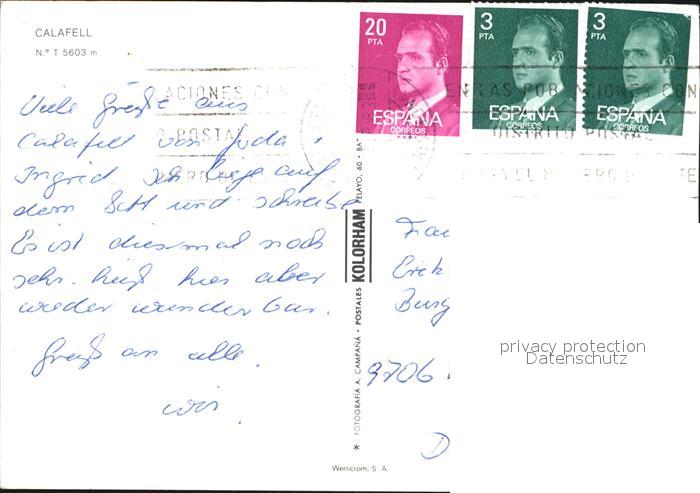 CALAFELL
N.° T 5603 m
20
PTA
ESPAÑA
CORREOS
3
PTA
ESPAÑA
CORREOS
3
PTA
ESPAÑA
CORREOS
ACIONES CON
POSTAL
EN LAS POB
ACIONES CON
DISTRITO POSTAL
Viele Grüße aus
Calafell von Juda
Ingrid ich liege auf
dem Bett und schreibe
Es ist diesmal noch
sehr heiß hier aber
wieder wunderbar.
Gruß an alle.
wir.
* FOTOGRAFIA A. CAMPAÑÁ • POSTALES KOLORHAM PELAYO, 60 • BA
Frau
Erick
Burg
privacy protection
Datenschutz
9706
D
Werticrom, S. A.